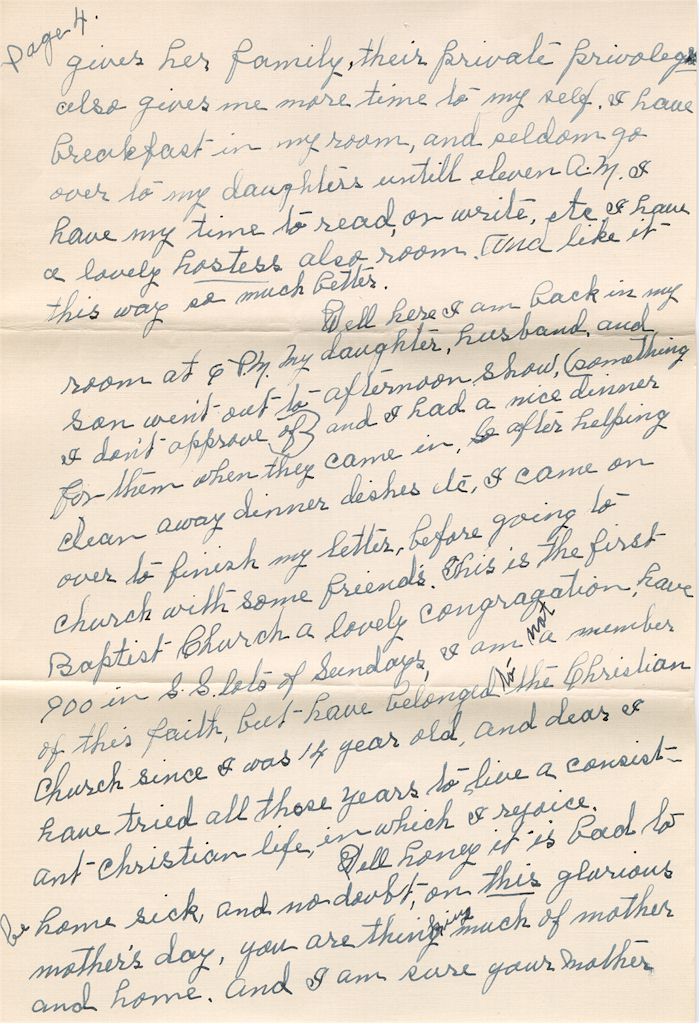 Page 4.
gives her family, their private privoleges
also gives me more time to my self. I have
breakfast in my room, and seldom go
over to my daughters untill eleven A.M. I
have my time to read, or write, etc I have
a lovely hostess also room. And like it
this way so much better.
Well here I am back in my
room at 6 PM. My daughter, husband, and
son went out to afternoon show, (something
I don't approve of) and I had a nice dinner
for them when they came in, So after helping
clean away dinner dishes etc, I came on
over to finish my letter, before going to
church with some friends. This is the first
Baptist Church a lovely congragation, have
900 in S.S. lots of Sundays, I am not a member
of this faith, but have belonged to the Christian
Church since I was 14 year old, and dear I
have tried all those years to live a consist-
ant Christian life, in which I rejoice.
Well honey it is bad to
be home sick, and no doubt, on this glorious
mother's day, you are thinking much of mother
and home. And I am sure your mother